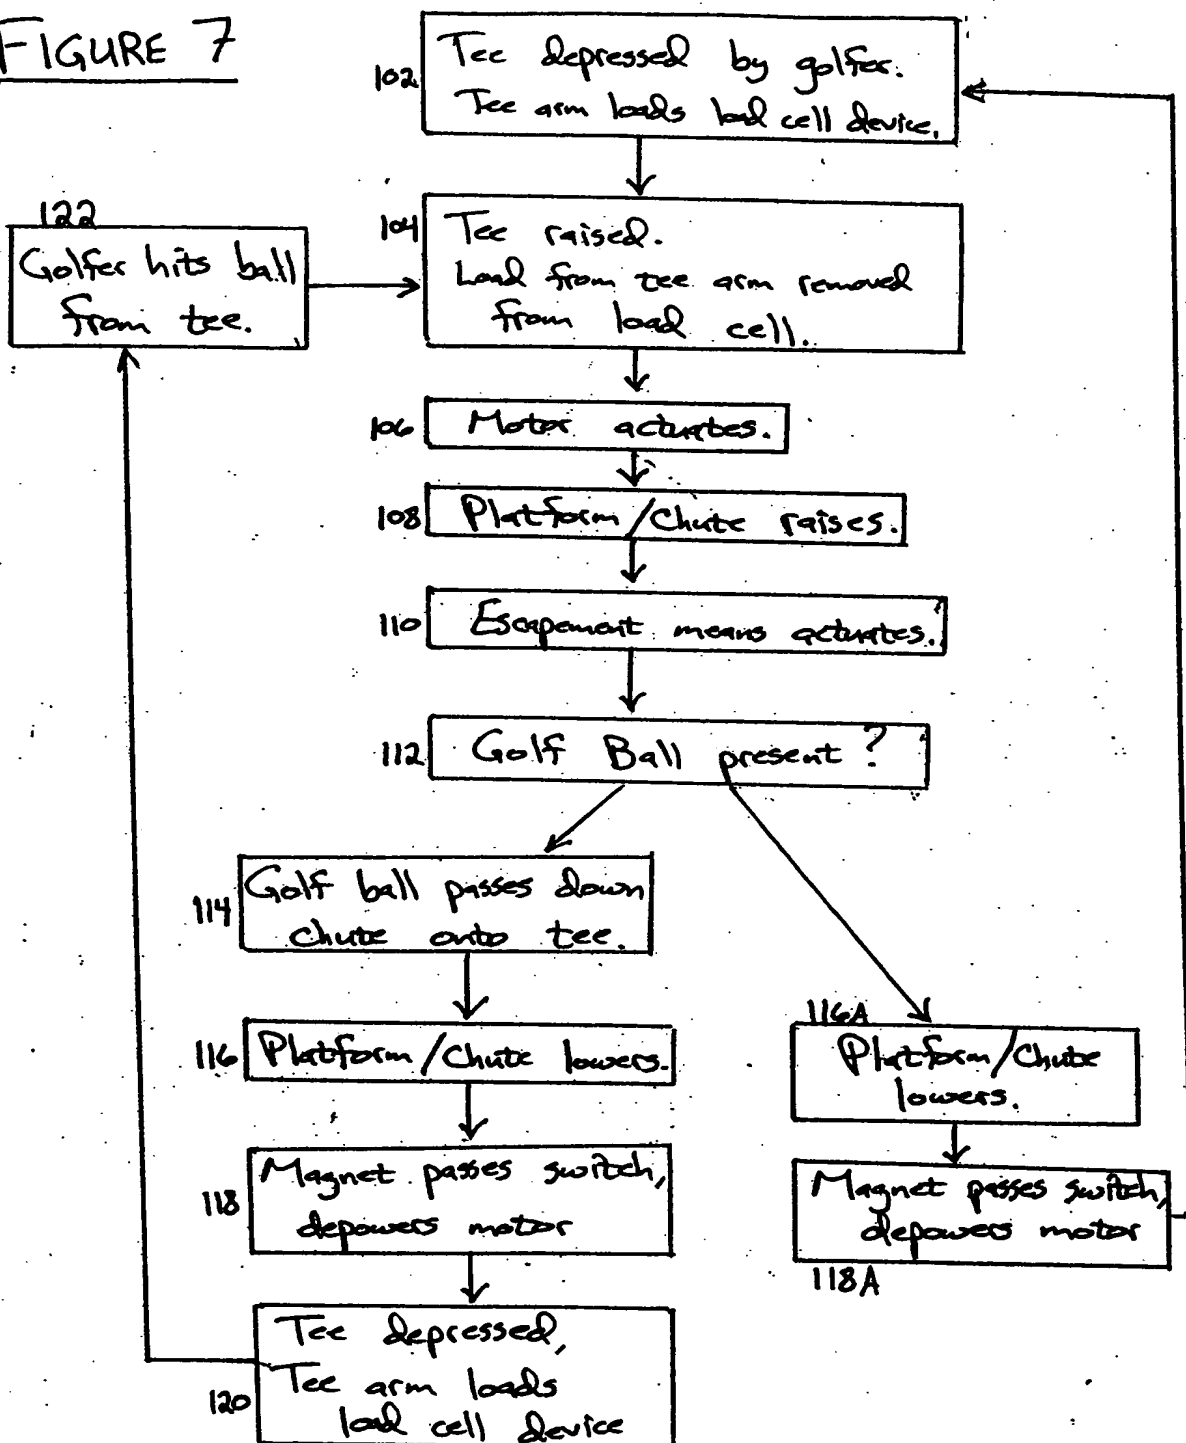 FIGURE 7
102
Tee depressed by golfer.
Tee arm loads load cell device.
122
Golfer hits ball
from tee.
104
Tee raised.
Load from tee arm removed
from load cell.
106
Motor actuates.
108
Platform/Chute raises.
110
Escapement means actuates.
112
Golf Ball present?
114
Golf ball passes down
chute onto tee.
116
Platform/Chute lowers.
116A
Platform/Chute
lowers.
118
Magnet passes switch,
depowers motor
Magnet passes switch,
depowers motor
118A
120
Tee depressed,
Tee arm loads
load cell device